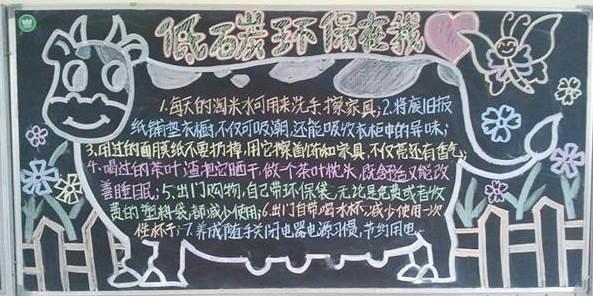 低碳环保在我
1.每天的淘米水可用来洗手,擦家具;2.将废旧报
纸铺垫衣橱,不仅可吸潮,还能吸收衣柜中的异味;
3.用过的面膜纸不要扔掉,用它擦首饰和家具,不仅亮还有香气;
4.喝过的茶叶渣把它晒干,做个茶叶枕头,既舒适又能改
善睡眠;5.出门购物,自己带环保袋,无论是免费或者收
费的塑料袋,都减少使用;6.出门自带喝水杯,减少使用一次
性杯子;7.养成随手关闭电器电源习惯,节约用电.